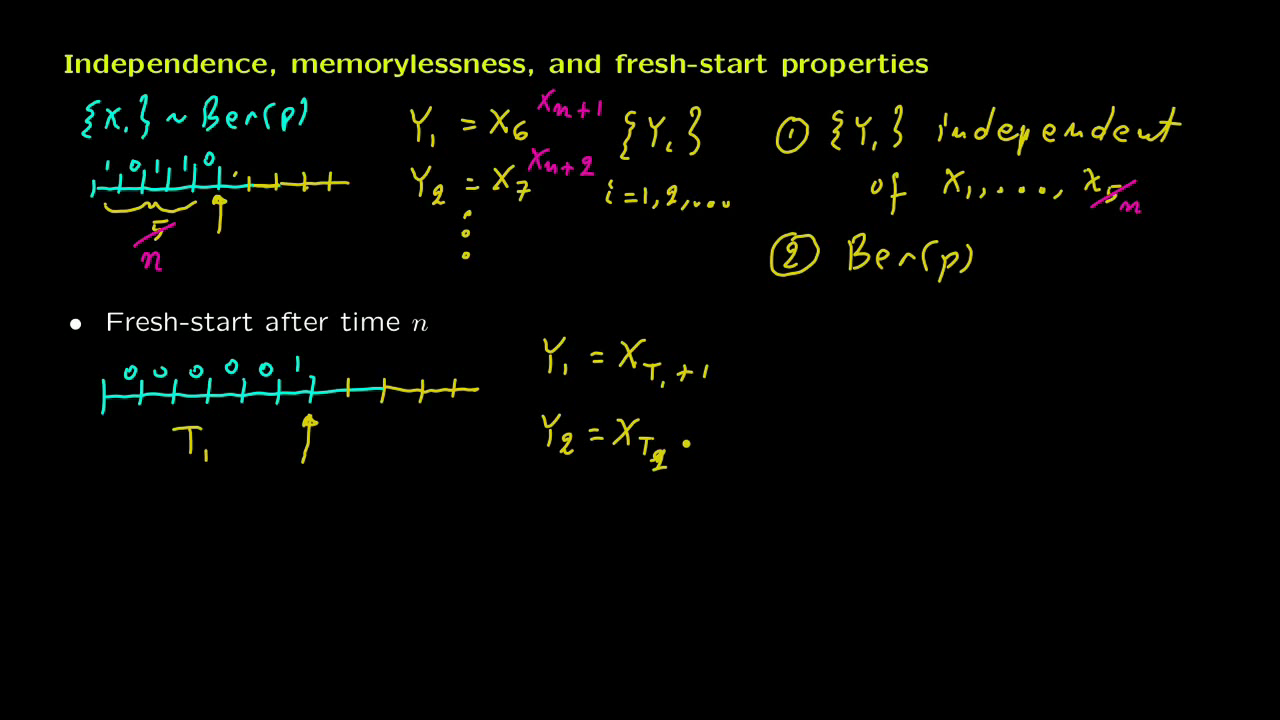 Independence, memorylessness, and fresh-start properties
{X_i} ~ Ber(p)
1 0 1 1 0
5 n
Y_1 = X_6 X_{n+1}
Y_2 = X_7 X_{n+2}
{Y_i}
i = 1, 2, ...
① {Y_i} independent
of X_1, ..., X_5 n
② Ber(p)
• Fresh-start after time n
0 0 0 0 0 1
T_1
Y_1 = X_{T_1 + 1}
Y_2 = X_{T_2}